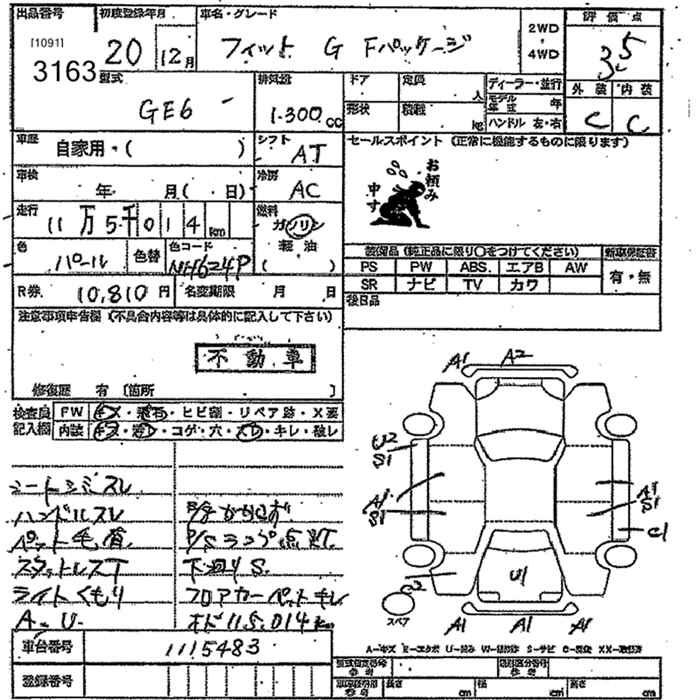 出品番号 初度登録年月 車名・グレード 評価点
[1091] 20 12月 フィット G Fパッケージ 2WD 3.5
3163 ・4WD
型式 排気量 ドア 定員 人 ディーラー・並行 外装 内装
GE6 1300cc 形状 積載 kg モデル年式 年 C C
ハンドル 左・右
車歴 自家用・( ) シフト AT セールスポイント (正常に機能するものに限ります)
車検 年 月( 日) 冷房 AC お頼み
申す
走行 11万5千014km 燃料 ガソリン
軽油
( )
色 パール 色替 色コード NH624P 装備品 (純正品に限り○をつけてください) 新車保証書
PS PW ABS. エアB AW 有・無
SR ナビ TV カワ
R券 10,810円 名変期限 月 日 後日品
注意事項申告欄 (不具合内容等は具体的に記入して下さい)
不動車
修復歴 有 [箇所 ]
検査員 FW キズ・飛石・ヒビ割・リペア跡・X要
記入欄 内装 キズ・汚レ・コゲ・穴・スレ・キレ・破レ
A1 A2 A1
U2
S1
シートシミスレ
ハンドルスレ
A1
S1
A1
S1
C1
ペット毛有 P/Sランプ点灯
スタットレスT 下廻りS.
ライトくもり フロアカーペットキレ
U1
A.U オド115,014km
スペア A1 A1 A1
A-キズ E-エクボ U-凹み S-サビ
車台番号 1115483
登録番号
型式指定番号 類別区分番号
長さ cm 幅 cm 高さ cm